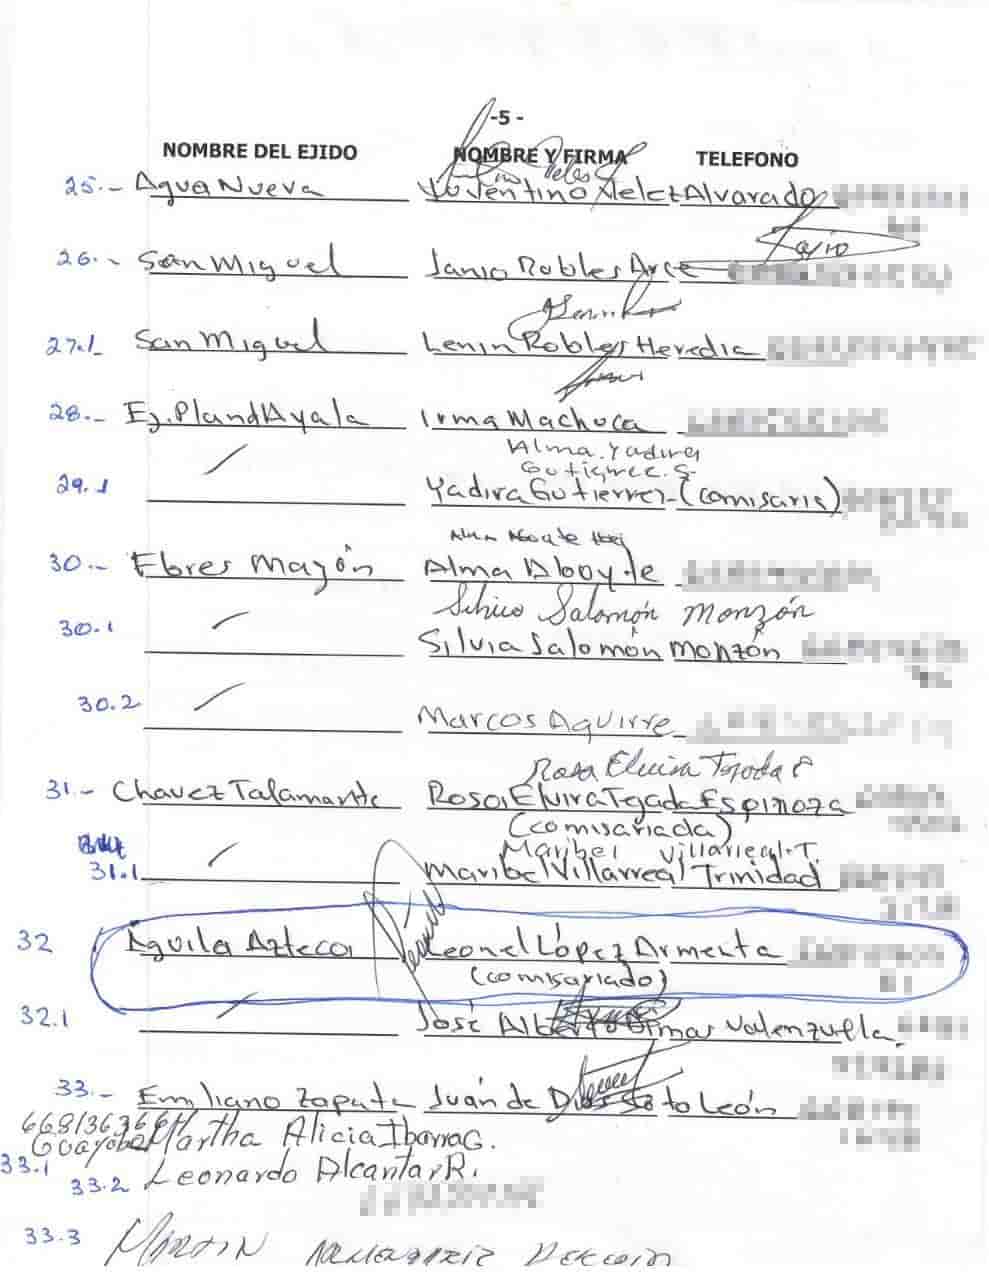 -5-
NOMBRE DEL EJIDO NOMBRE Y FIRMA TELEFONO
25.- Agua Nueva Juventino Velez Alvarado
26.- San Miguel Janio Robles Arce
27.1 San Miguel Lenin Robles Heredia
28.- Ej. PlandAyala Irma Machuca
Alma Yadira
Gutierrez. G.
29.1 Yadira Gutierrez (comisaria)
30.- Flores Magón Alma Aboyte
Silvia Salomón Monzón
30.1 Silvia Salomón Monzón
30.2 Marcos Aguirre
Rosa Elvira Tejada E
31.- Chavez Talamante Rosa Elvira Tejada Espinoza
(comisariada)
Maribel Villarreal.T.
31.1 Maribel Villarreal Trinidad
32 Aguila Azteca Leonel López Armenta
(comisariado)
32.1 José Alberto Valenzuela
33.- Emiliano Zapata Juán de Dios Soto León
Martha Alicia Ibarra G.
33.1
33.2 Leonardo Alcantar R.
33.3 Martin